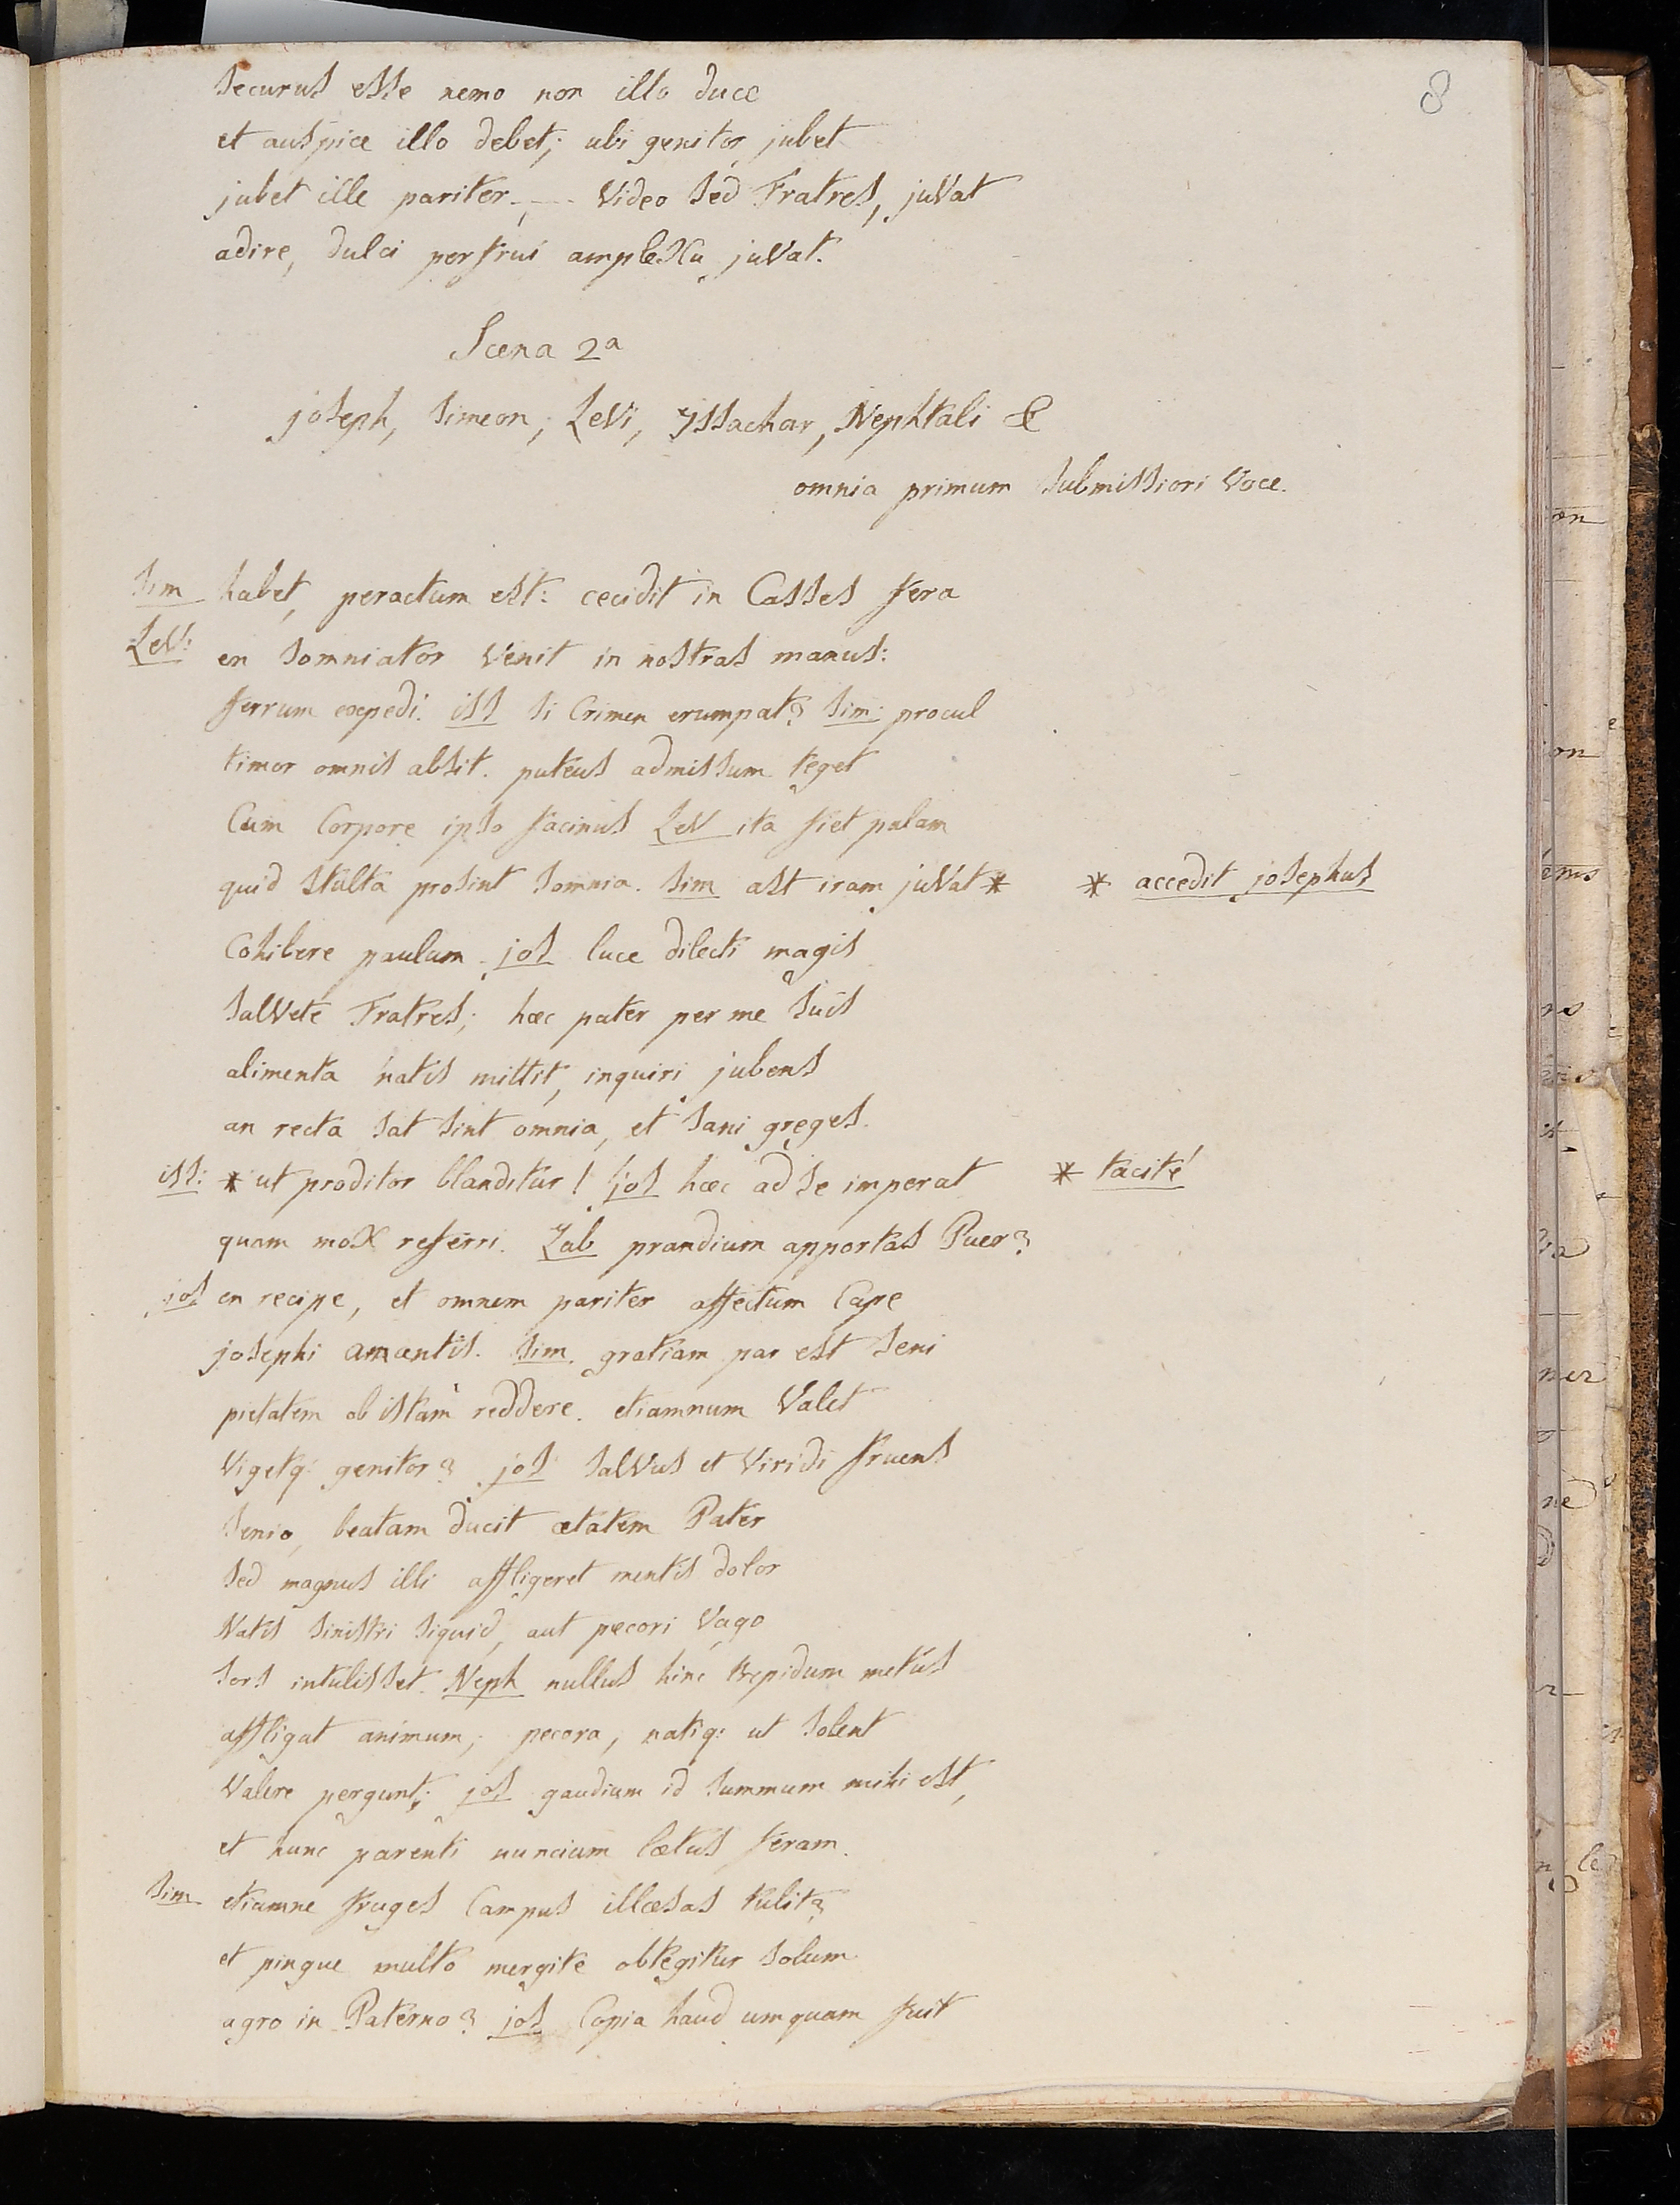 8
securus esse nemo non illo duce
et auspice illo debet; ubi genitor jubet
jubet ille pariter; — Video sed Fratres, juvat
adire, dulci perfrui amplexu juvat.
Scena 2a
joseph, simeon, Levi, yssachar, Nephtali &
omnia primum submissiori voce.
Sim habet, peractum est: cecidit in Casses fera
Lev: en somniator venit in nostras manus:
ferrum expedi. iss si Crimen erumpat? Sim: procul
timor omnis absit. puteus admissum teget
Cum Corpore ipso facinus Lev ita fiet palam
quid stulta prosint somnia. Sim ast iram juvat * * accedit josephus
Cohibere paulum. jos luce dilecti magis
salvete Fratres; hæc pater per me suis
alimenta natis mittit, inquiri jubens
an recta sat sint omnia, et sani greges.
iss: * ut proditor blanditur! jos hæc ad se imperat * tacite
quam mox referri. Zab prandium apportas Puer?
jos en recipe, et omnem pariter affectum Cape
josephi amantis. Sim. gratiam par est seni
pietatem ob istam reddere. etiamnum valet
vigetq: genitor? jos salvus et viridi fruens
senio, beatam ducit ætatem Pater
sed magnus illi affligeret mentis dolor
Natis sinistri siquid, aut pecori vago
sors intulisset. Neph nullus hinc trepidum metus
affligat animum; pecora, natiq: ut solent
valere pergunt; jos gaudium id summum mihi est,
et hunc parenti nuncium lætus feram.
Sim etiamne fruges Campus illæsas tulit?
et pingue multo mergite obtegitur solum
agro in Paterno? jos Copia haud umquam fuit